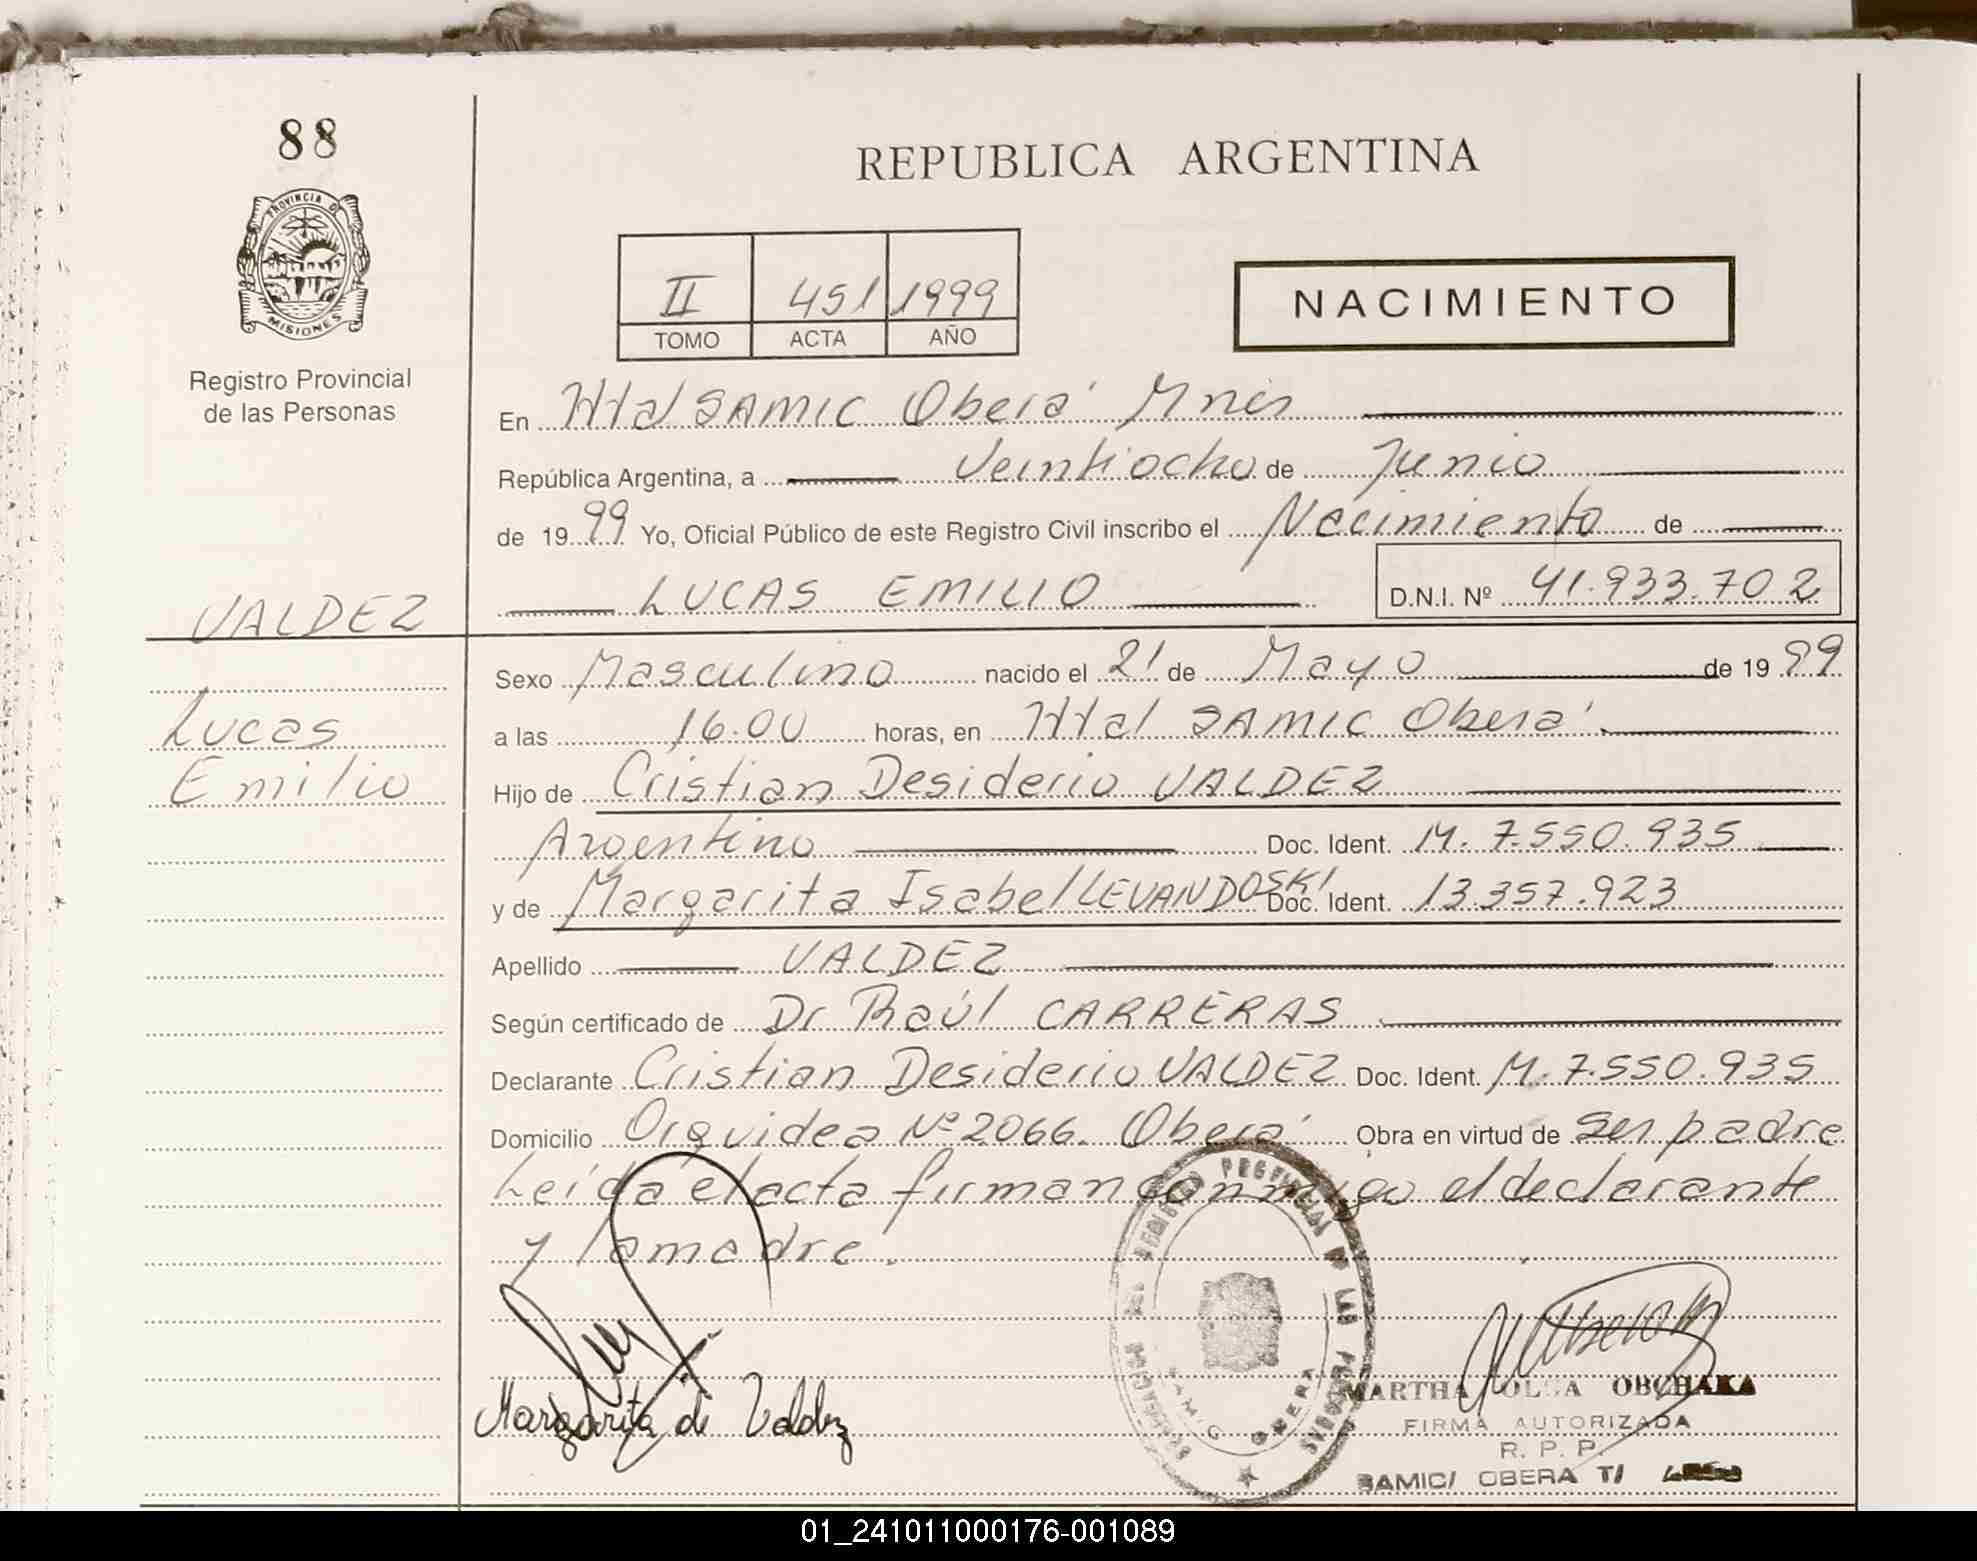 88
PROVINCIA DE
MISIONES
Registro Provincial
de las Personas
VALDEZ
Lucas
Emilio
REPUBLICA ARGENTINA
II 451 1999
TOMO ACTA AÑO
NACIMIENTO
En Htal SAMIC Oberá Mnes
República Argentina, a Veintiocho de Junio
de 1999 Yo, Oficial Público de este Registro Civil inscribo el Nacimiento de
LUCAS EMILIO D.N.I. Nº 41.933.702
Sexo Masculino nacido el 21 de Mayo de 1999
a las 16.00 horas, en Htal SAMIC Oberá
Hijo de Cristian Desiderio VALDEZ
Argentino Doc. Ident. M. 7.550.935
y de Margarita Isabel LEVANDOSKI Doc. Ident. 13.357.923
Apellido VALDEZ
Según certificado de Dr Raúl CARRERAS
Declarante Cristian Desiderio VALDEZ Doc. Ident. M. 7.550.935
Domicilio Orquidea Nº 2066. Oberá Obra en virtud de ser padre
Leída el acta firman conmigo el declarante
y la madre.
Margarita de Valdez
SAMIC OBERA
MARTHA OLGA OBCHAKA
FIRMA AUTORIZADA
R. P. P.
SAMIC/ OBERA T/
01_241011000176-001089